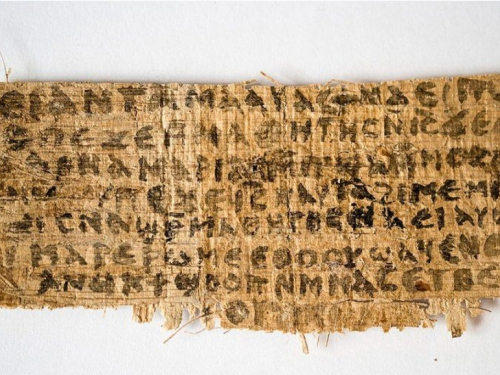 ⲉⲓ ⲁⲛ ⲧⲁⲙⲁⲁⲩ ⲁⲥϯ ⲛⲁⲉⲓ
ⲡⲉϫⲉ ⲙⲙⲁⲑⲏⲧⲏⲥ ⲛⲓ̅ⲥ̅ ϫⲉ
ⲁⲣⲛⲁ ⲙⲁⲣⲓⲁⲙ ⲙⲡϣⲁ ⲙⲙⲟⲥ
ⲡⲉϫⲉ ⲓ̅ⲥ̅ ⲛⲁⲩ ⲧⲁϩⲓⲙⲉ ⲙⲛ
ⲙⲁⲑⲏⲧⲏⲥ ⲛⲁⲉⲓ ⲁⲩ
ⲓ ⲙⲁⲣⲉⲣⲱⲙⲉ ⲉⲑⲟⲟⲩ ϣⲁϥⲉⲛⲉ
ⲁⲛⲟⲕ ϯϣⲟⲟⲡ ⲛⲙⲙⲁⲥ ⲉⲧⲃⲉ